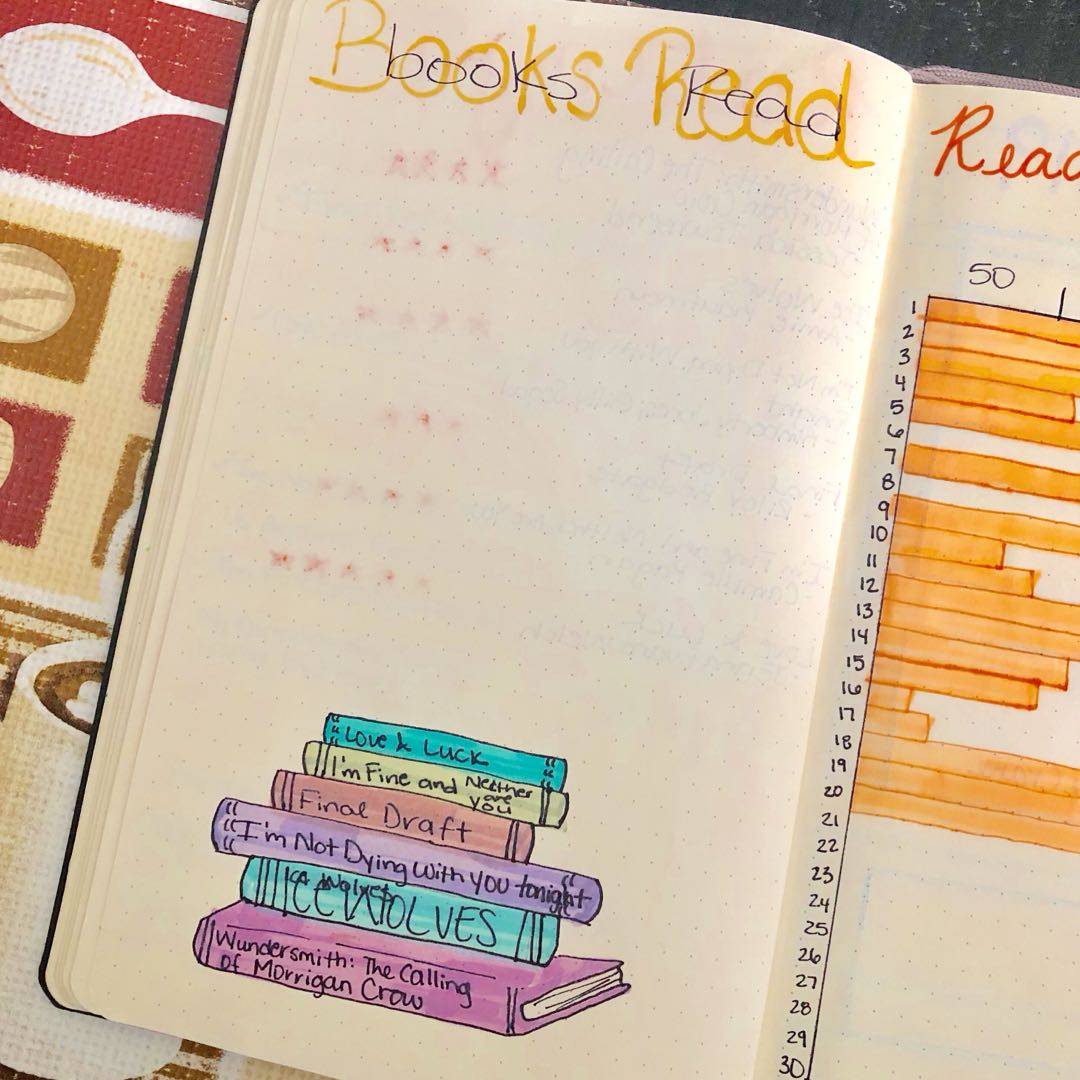 Books Read
books Read
Read
50
1
2
3
4
5
6
7
8
9
10
11
12
13
14
15
16
17
18
19
20
21
22
23
24
25
26
27
28
29
30
Love & Luck
I'm Fine and Neither
are
you
Final Draft
I'm Not Dying with you tonight
ICE WOLVES
Wundersmith: The Calling
of Morrigan Crow